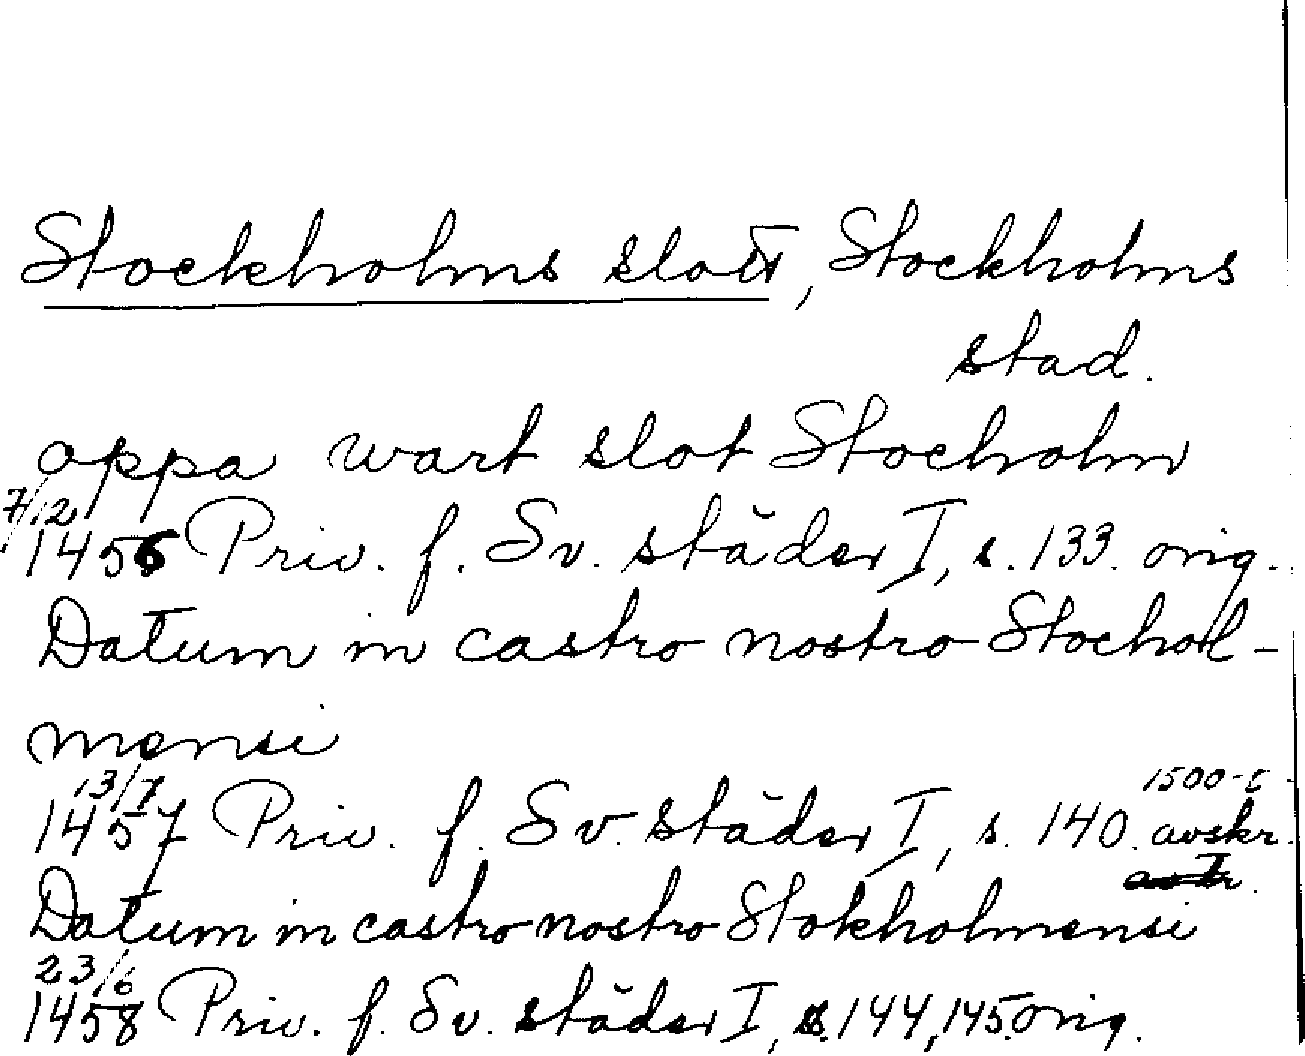 Stockholms slott, Stockholms
stad.
oppa wart slot Stocholm
7/12
1456 Priv. f. Sv. städer I, s. 133. orig.
Datum in castro nostro Stochol-
mensi
13/7 1500-t
1457 Priv. f. Sv. städer I, s. 140. avskr.
Datum in castro nostro Stokholmensi
23/6
1458 Priv. f. Sv. städer I, s. 144, 145. orig.